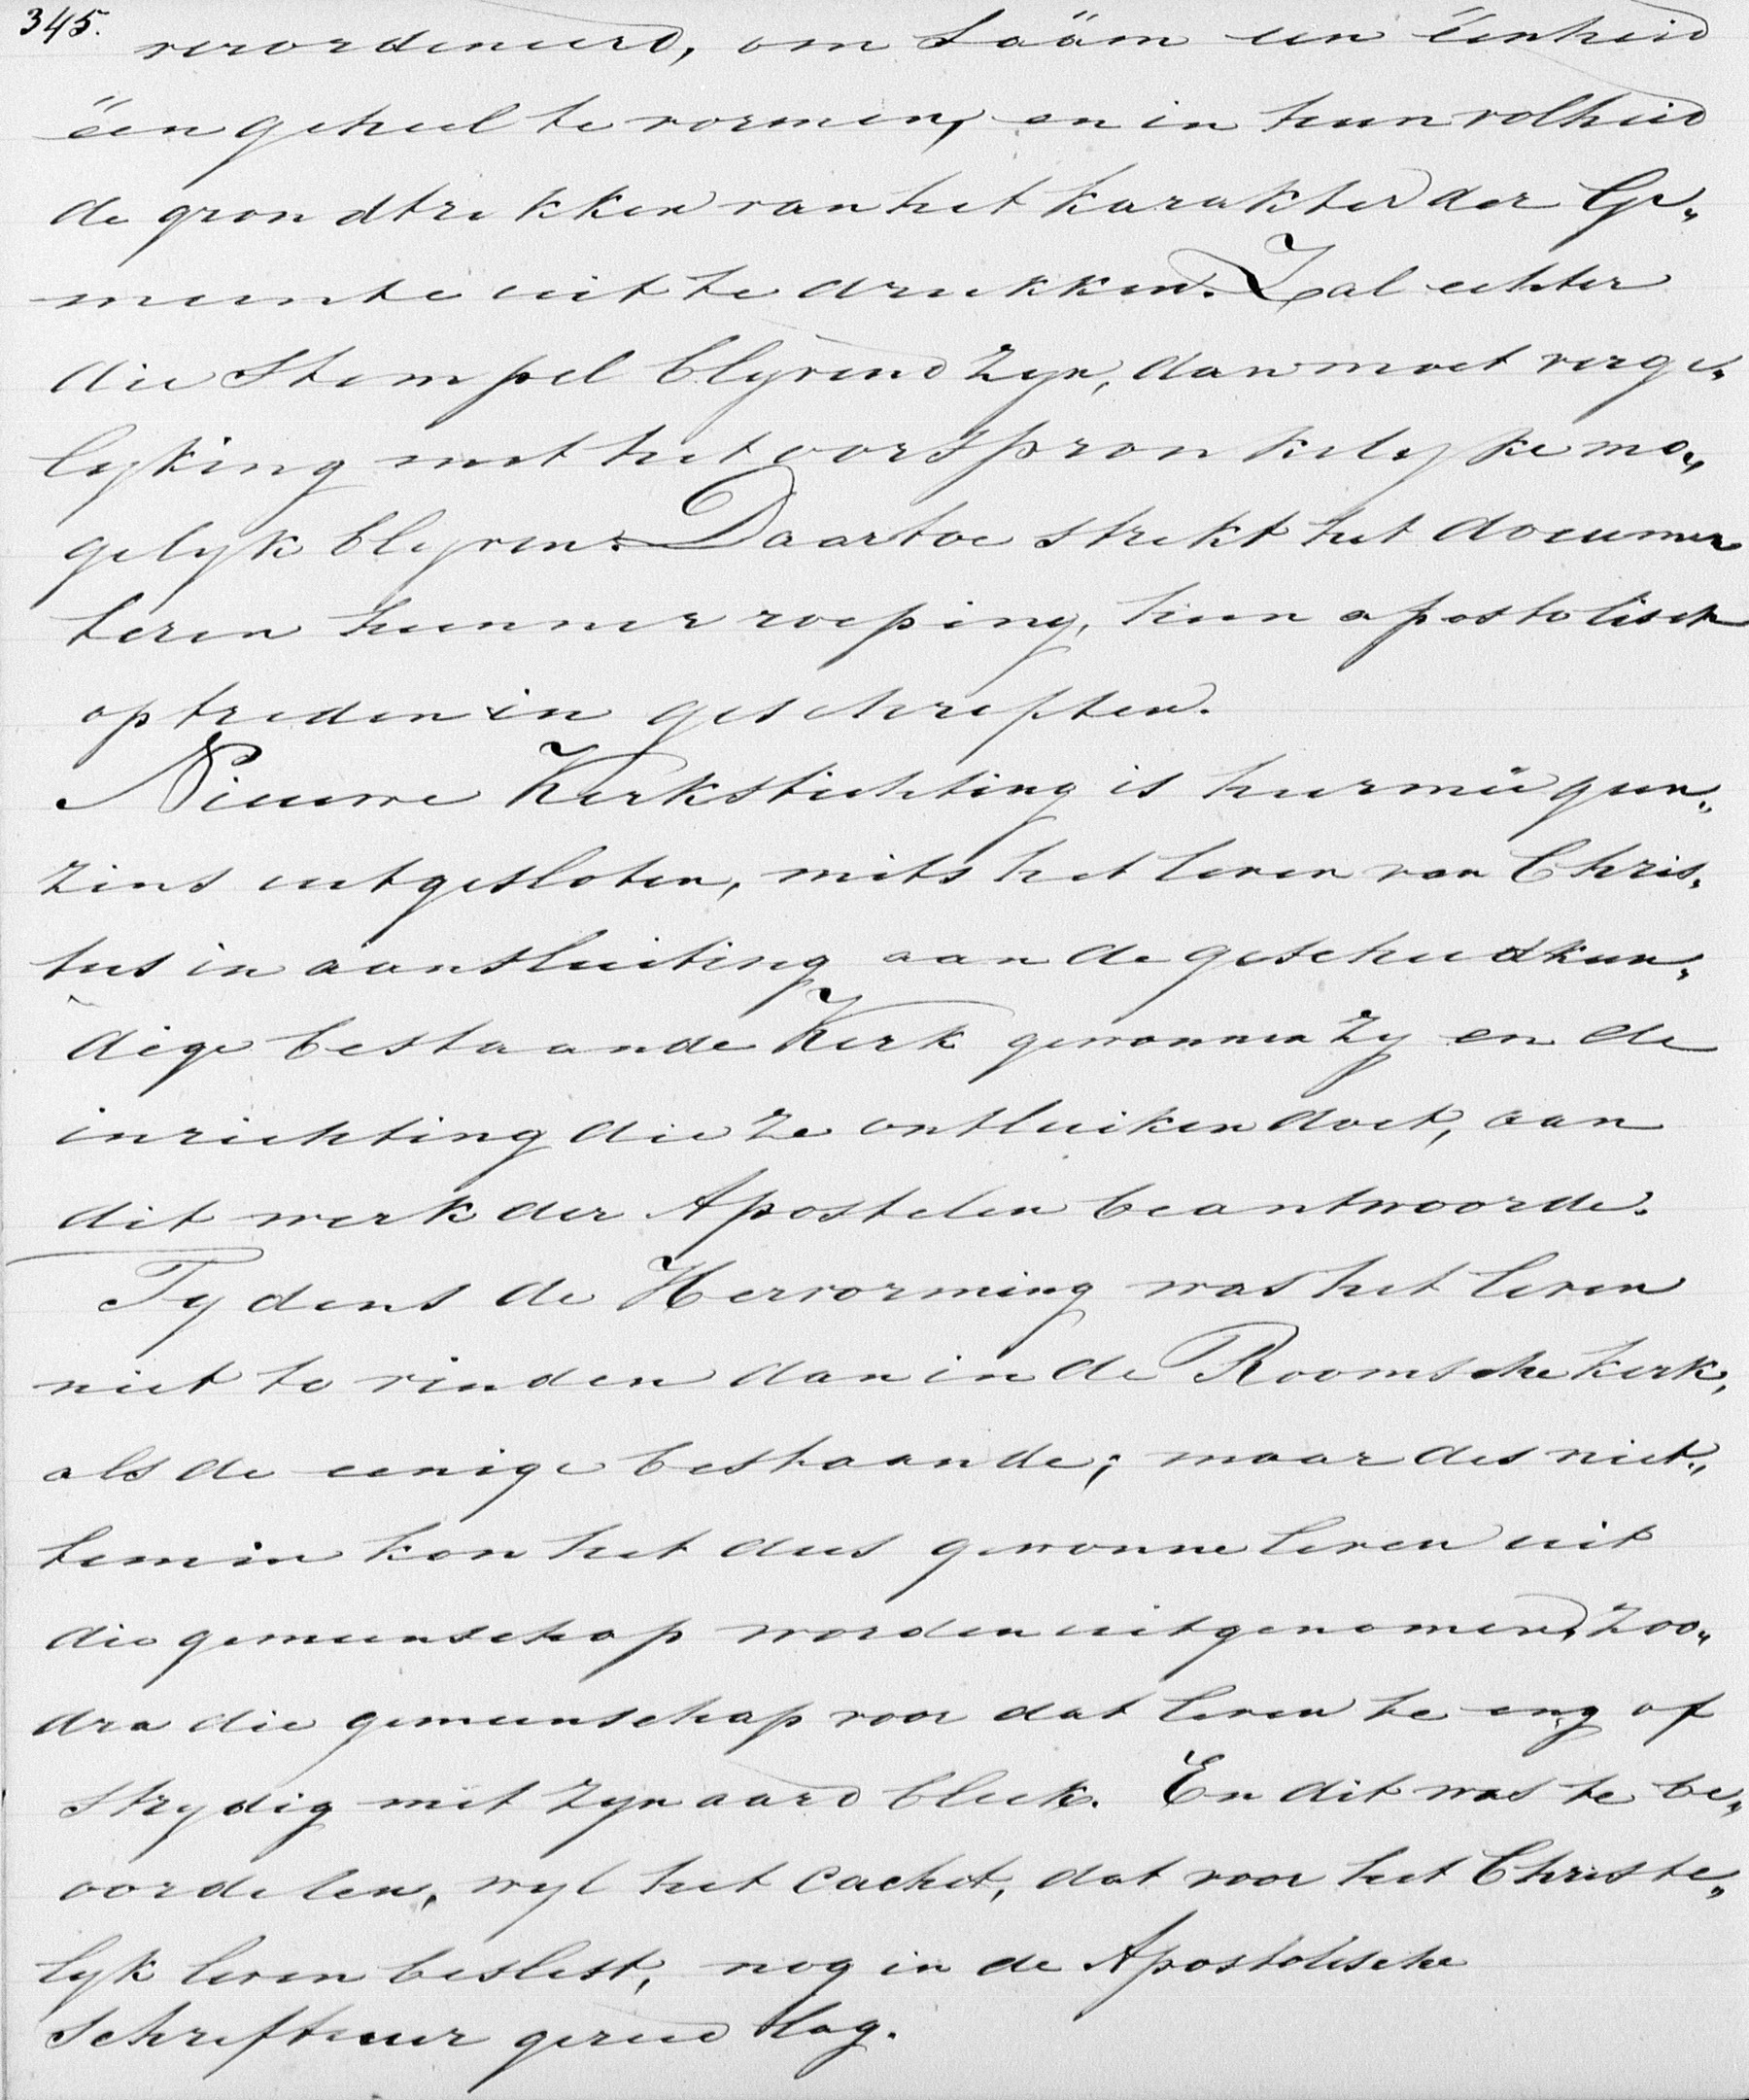 345.
verordineerd, om saäm een éénheid
één geheel te vormen, en in hun volheid
de grondtrekken van het karakter der Ge„
meente uit te drukken. Zal echter
die stempel blyvend zyn, dan moet verge„
lyking met het oorspronkelyke mo„
gelyk blyven. Daartoe strekt het documen
teren hunner roeping, hun apostolisch
optreden in geschriften.
Nieuwe Kerkstichting is hiermeê geen„
zins uitgesloten, mits het leven van Chris„
tus in aansluiting aan de geschiedkun„
dige bestaande Kerk gewonnen zy en de
inrichting die ze ontluiken doet, aan
dit werk der Apostelen beantwoorde.
Tydens de Hervorming was het leven
niet te vinden dan in de Roomsche kerk,
als de eenige bestaande; maar des niet„
temin kon het dus gewonne leven uit
die gemeenschap worden uitgenomen, zoo„
dra die gemeenschap voor dat leven te eng of
strydig met zyn aard bleek. En dit was te be„
oordelen, wyl het cachet, dat voor het Christe„
lyk leven beslist, nog in de Apostolische
schriftuur gereed lag.